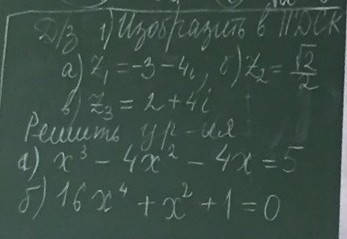 Д/З 1) Изобразить в ПДСК
а) z₁ = -3 - 4i, б) z₂ = √2/2
в) z₃ = 2 + 4i
Решить ур-ия
а) x³ - 4x² - 4x = 5
б) 16x⁴ + x² + 1 = 0